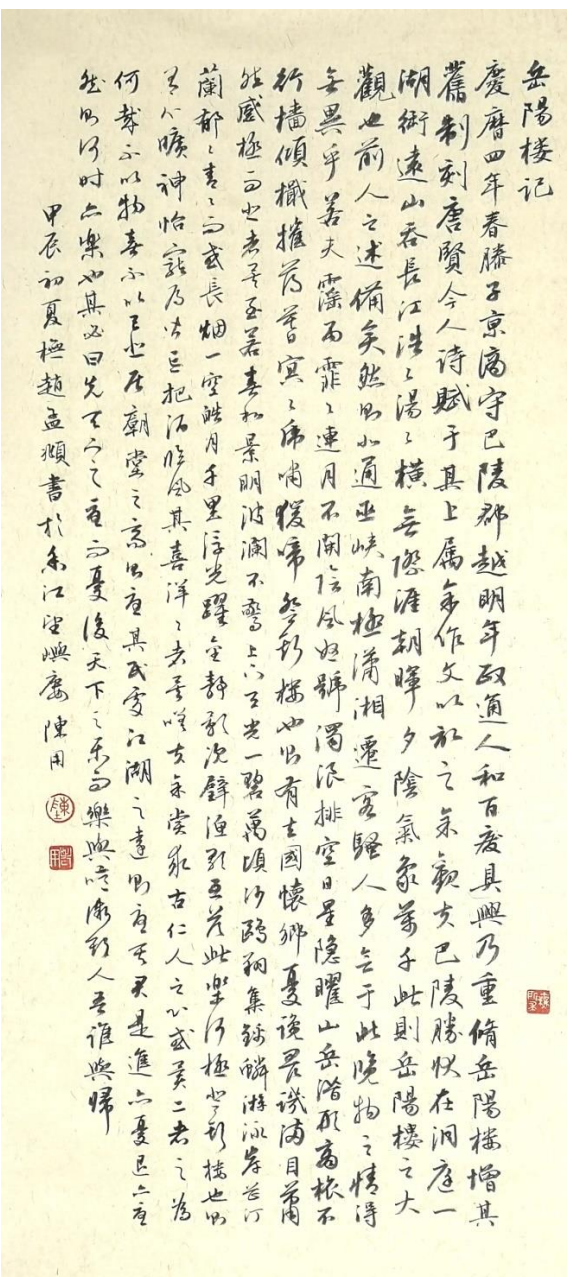 岳陽楼记
慶曆四年春滕子京谪守巴陵郡越明年政通人和百废具興乃重脩岳陽楼增其
舊制刻唐賢今人诗赋于其上属余作文以记之余观夫巴陵勝状在洞庭一
湖衔遠山吞長江浩々湯々横無際涯朝暉夕陰氣象萬千此則岳陽樓之大
觀也前人之述備矣然则北通巫峡南極瀟湘遷客騷人多会于此览物之情得
無異乎若夫霪雨霏々連月不開陰风怒號濁浪排空日星隐曜山岳潜形商旅不
行樯傾檝摧薄暮冥々虎啸猨啼登斯楼也则有去國懷鄉憂谗畏讥满目蕭
然感極而悲者矣至若春和景明波瀾不驚上下天光一碧萬頃沙鷗翔集錦鱗游泳岸芷汀
蘭郁々青々而或長烟一空皓月千里浮光躍金静影沉璧渔歌互答此樂何極登斯楼也则
有心曠神怡寵辱皆忘把酒临风其喜洋々者矣嗟夫余尝求古仁人之心或异二者之為
何哉不以物喜不以己悲居廟堂之高则憂其民處江湖之遠则憂其君是進亦憂退亦憂
然则何时而樂也其必曰先天下之憂而憂後天下之樂而樂與噫微斯人吾誰與歸
甲辰初夏趙孟頫書於香江望嶼廔 陳用